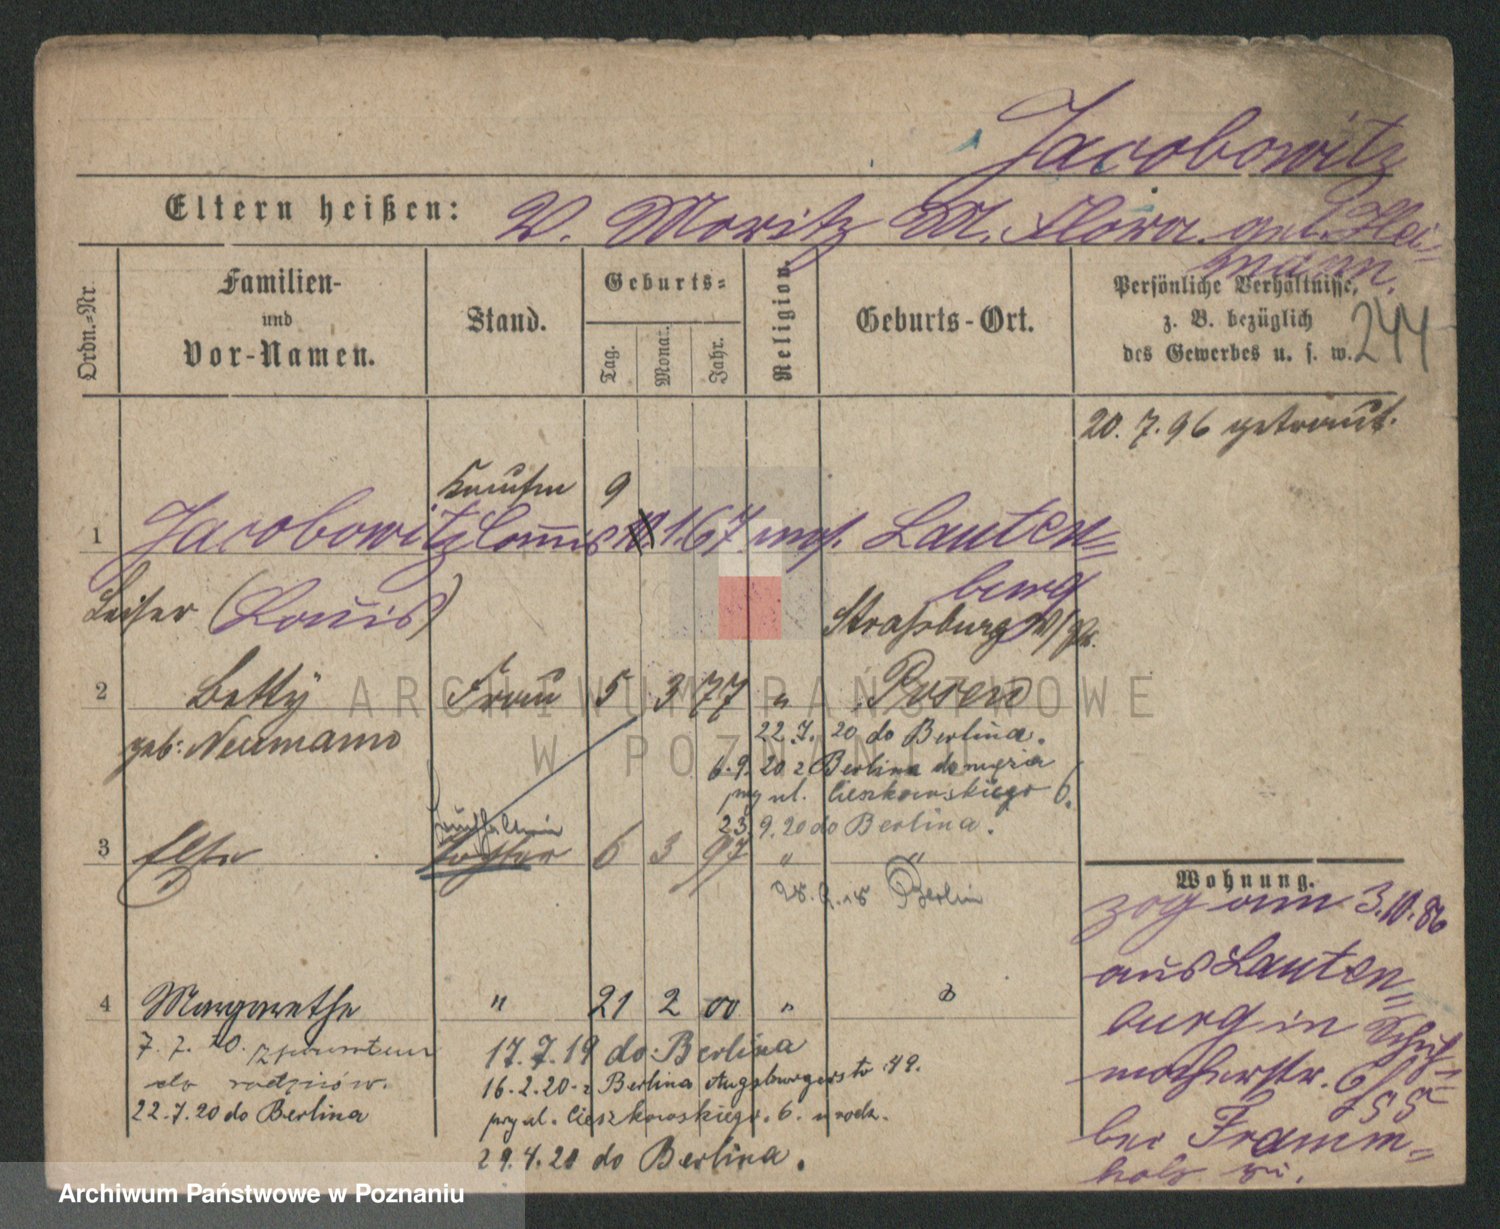 Jacobowitz
Eltern heißen: V. Moritz M. Flora geb. Hei-
mann.
Ordn.-Nr.
Familien-
und
Vor-Namen.
Stand.
Geburts-
Tag. Monat. Jahr.
Religion.
Geburts-Ort.
Persönliche Verhältnisse,
z. B. bezüglich
des Gewerbes u. s. w.
244
20. 7. 96 getraut.
Kaufm 9
1 Jacobowitz Commis 1. 67 mos. Lauten-
burg
Leiser (Louis) Strasburg W/Pr.
2 Betty Frau 5 3 77 " Posen
geb: Neumann
22. 7. 20 do Berlina.
6. 9. 20 z Berlina do męża
przy ul. Cieszkowskiego 6.
23. 9. 20 do Berlina.
3 Else Tochter 6 3 97 " "
Berlin
4 Margarethe " 21 2 00 "
7. 7. 20. z powrotem
do rodziców.
22. 7. 20 do Berlina
17. 7. 19 do Berlina
16. 2. 20 z Berlina Augsburgerstr 49.
przy ul. Cieszkowskiego. 6. u rodz.
29. 4. 20 do Berlina.
Wohnung.
zog am 3.10.86
aus Lauten-
burg in Schuh-
macherstr. 6/55
bei Framm-
holz zu.
ARCHIWUM PAŃSTWOWE
W POZNANIU
Archiwum Państwowe w Poznaniu